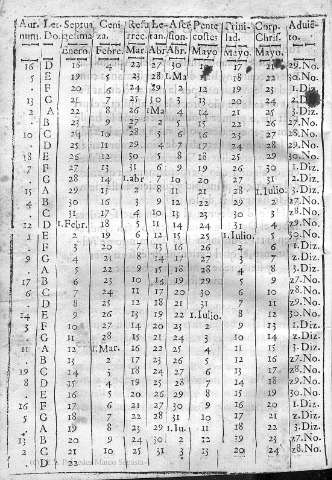 Aur. Let. Septua Ceni Resu Le- Ascē Pente Trini Corp. Adviē
num. Do. gesima za. rrec. tan. sion. costes dad. Chrisſ. to.
enero. Febre. Mar. Abri Abr. Mayo Mayo Mayo.
16 D 18 4 22 27 30 10 17 21 29.No.
5 E 19 5 23 28 1.Ma 11 18 22 30.No.
F 20 6 24 29 2 12 19 23 1.Diz.
13 G 21 7 25 30 3 13 20 24 2.Diz.
2 A 22 8 26 1.Ma 4 14 21 25 3.Diz.
B 23 9 27 2 5 15 22 26 27.No.
10 C 24 10 28 3 6 16 23 27 28.No.
D 25 11 29 4 7 17 24 28 29.No.
18 E 26 12 30 5 8 18 25 29 30.No.
7 F 27 13 31 6 9 19 26 30 1.Diz.
G 28 14 1.abr 7 10 20 27 31 2.Diz.
15 A 29 15 2 8 11 21 28 1.Iulio. 3.Diz.
4 B 30 16 3 9 12 22 29 2 27.No.
C 31 17 4 10 13 23 30 3 28.No.
12 D 1.Febr. 18 5 11 14 24 31 4 29.No.
1 E 2 19 6 12 15 25 1.Iulio. 5 30.No.
F 3 20 7 13 16 26 2 6 1.Diz.
9 G 4 21 8 14 17 27 3 7 2.Diz.
A 5 22 9 15 18 28 4 8 3.Diz.
17 B 6 23 10 16 19 29 5 9 27.No.
6 C 7 24 11 17 20 30 6 10 28.No.
D 8 25 12 18 21 31 7 11 29.No.
14 E 9 26 13 19 22 1.Iulio. 8 12 30.No.
3 F 10 27 14 20 23 2 9 13 1.Diz.
G 11 28 15 21 24 3 10 14 2.Diz.
11 A 12 1.Mar. 16 22 25 4 11 15 3.Diz.
B 13 2 17 23 26 5 12 16 27.No.
19 C 14 3 18 24 27 6 13 17 28.No.
8 D 15 4 19 25 28 7 14 18 29.No.
E 16 5 20 26 29 8 15 19 30.No.
16 F 17 6 21 27 30 9 16 20 1.Diz.
5 G 18 7 22 28 31 10 17 21 2.Diz.
A 19 8 23 29 1.Iu. 11 18 22 3.Diz.
13 B 20 9 24 30 2 12 19 23 27.No.
2 C 21 10 25 31 3 13 20 24 28.No.
D 22 29.No.